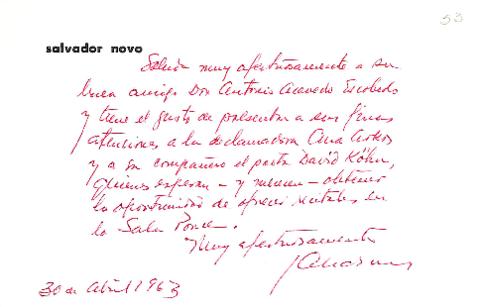 53
salvador novo
Saluda muy afectuosamente a su
buen amigo Don Antonio Acevedo Escobedo
y tiene el gusto de presentar a sus finas
atenciones a la declamadora Ana
y a su compañero el poeta David Köhn,
quienes esperan – y merecen – obtener
la oportunidad de ofrecer recitales en
la Sala Ponce.
Muy afectuosamente
30 de Abril 1963